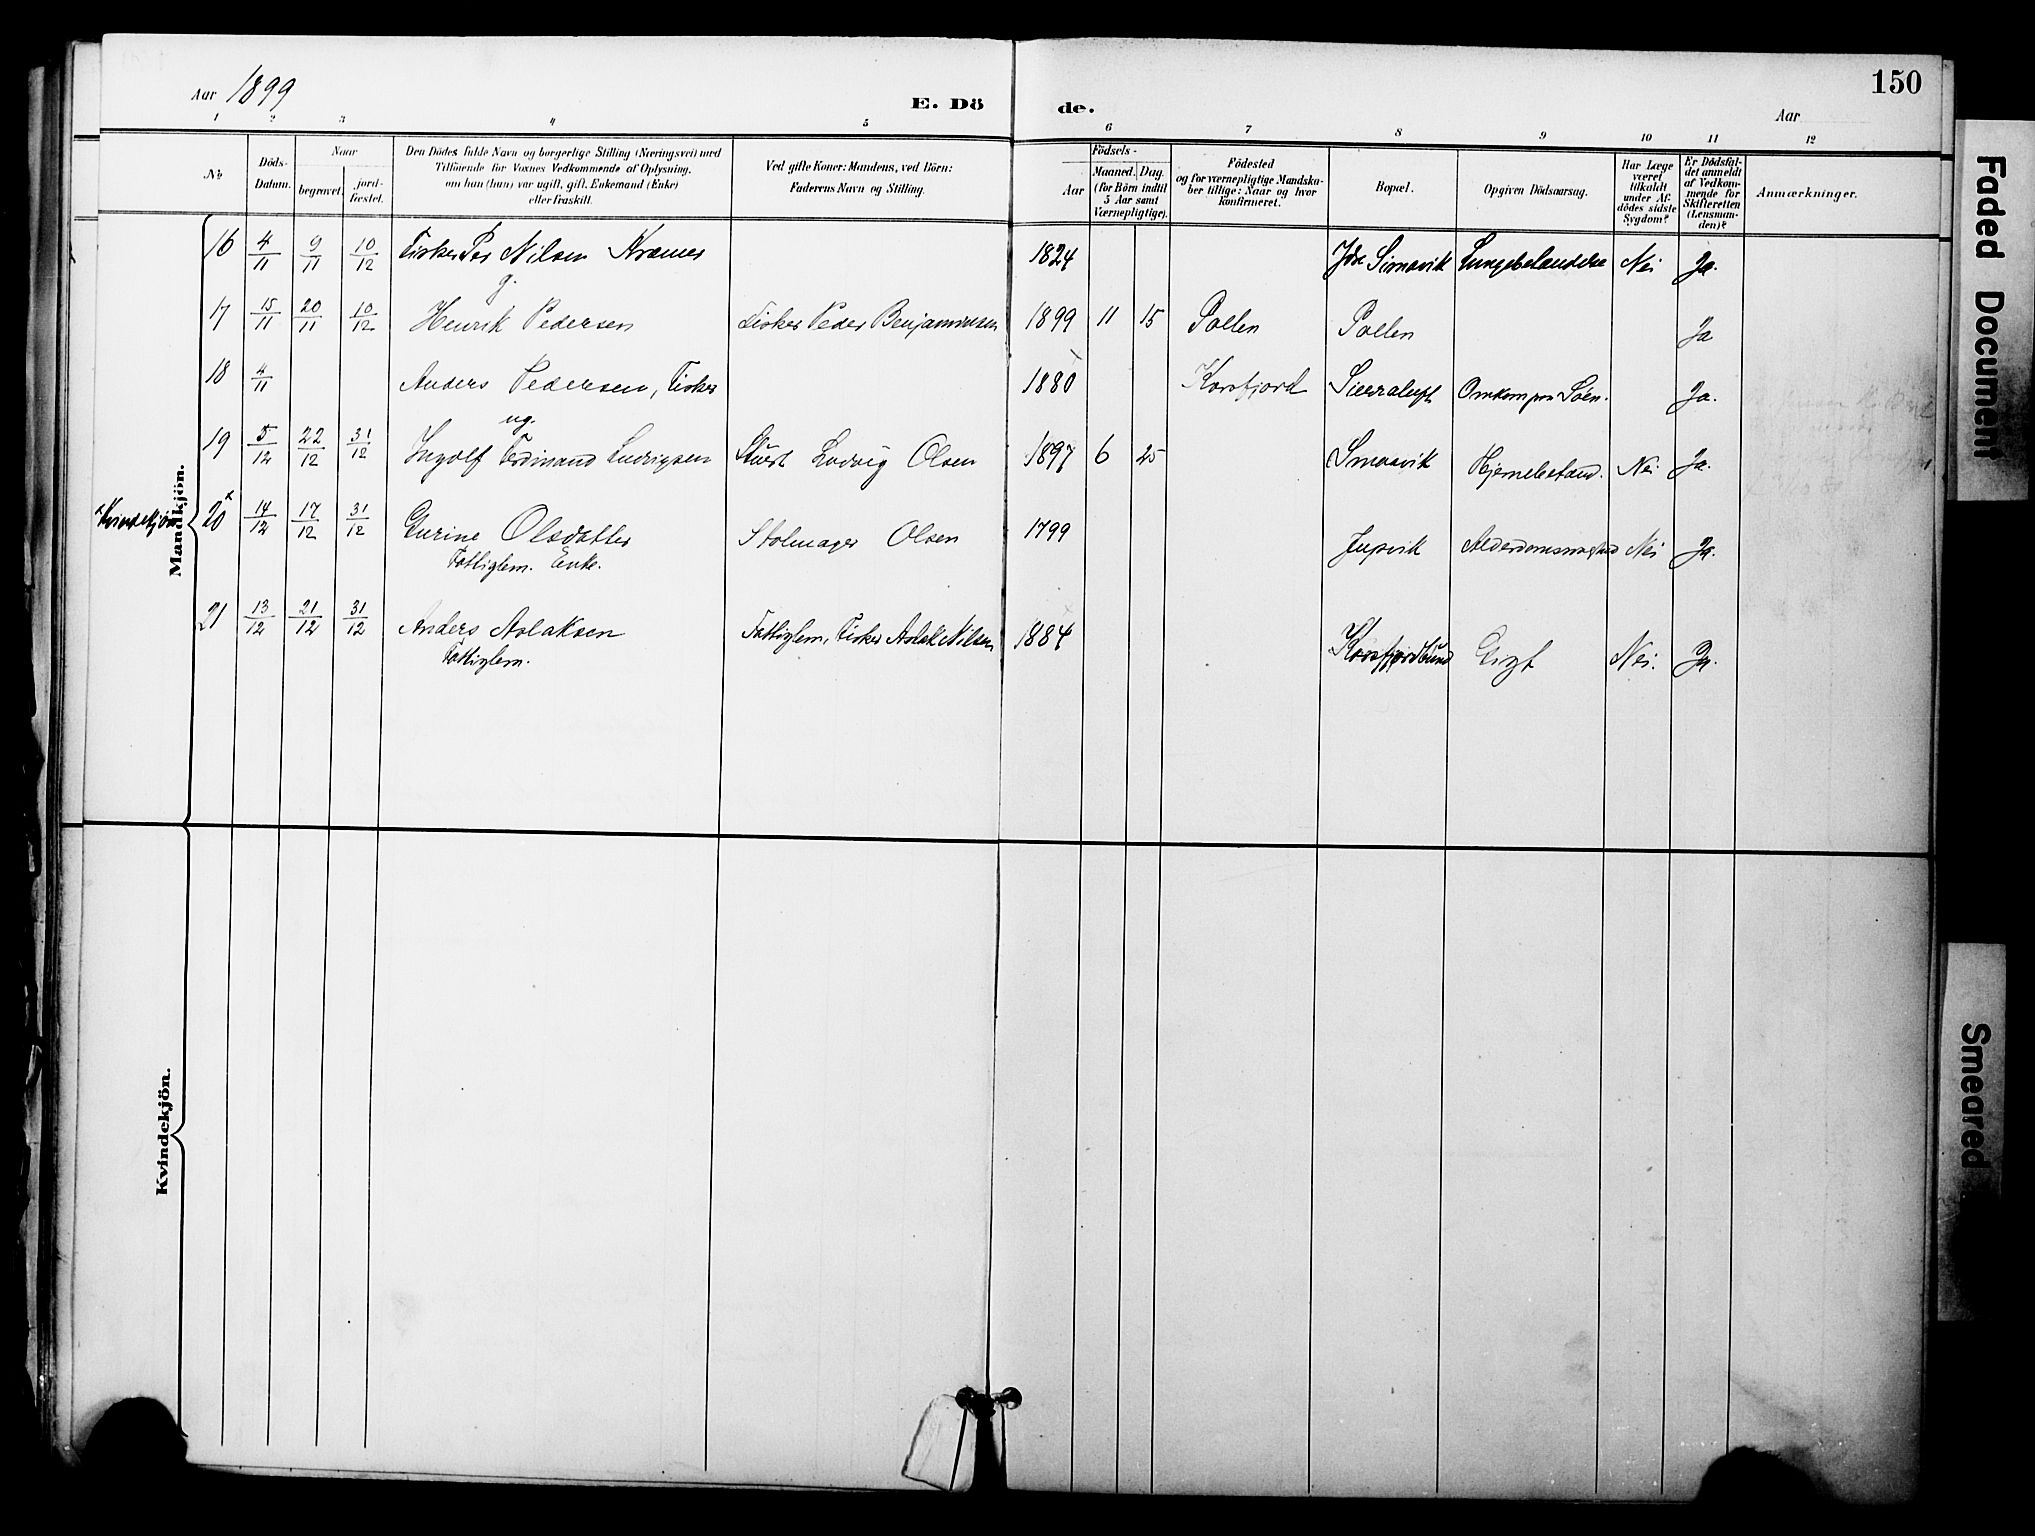 150
Aar 1899
E. Dö de.
Aar
1 2 3 4 5 6 7 8 9 10 11 12
No
Döds-
Datum.
Naar
begravet.
jord-
fæstet.
Den Dödes fulde Navn og borgerlige Stilling (Næringsvei) med
Tilföiende for Voxnes Vedkommende af Oplysning,
om han (hun) var ugift, gift, Enkemand (Enke)
eller fraskilt.
Ved gifte Koner: Mandens, ved Börn:
Faderens Navn og Stilling.
Födsels-
Aar
Maaned. Dag.
(for Börn indtil
5 Aar samt
Værnepligtige).
Födested
og for værnepligtige Mandska-
ber tillige: Naar og hvor
konfirmeret.
Bopæl.
Opgiven Dödsaarsag.
Har Læge
været
tilkaldt
under Af-
dödes sidste
Sygdom?
Er Dödsfal-
det anmeldt
af Vedkom-
mende for
Skifteretten
(Lensman-
den)?
Anmærkninger.
16 4/11 9/11 10/12 Fisker Per Nilsen Kræmer 1824 Simavik Lungebetændelse Nei Ja.
g.
17 15/11 20/11 10/12 Henrik Pedersen Fisker Peder Benjaminsen 1899 11 15 Pollen Pollen Ja
18 4/11 Anders Pedersen, Fisker 1880 Korsfjord Omkom paa Söen. Ja.
ug.
19 5/12 22/12 31/12 Ingolf Ferdinand Ludvigsen Ludvig Olsen 1897 6 25 Smaavik Nei Ja.
x Kvindekjön 20 x 14/12 17/12 31/12 Gurine Olsdatter Olsen 1799 Jupvik Nei Ja.
Fattiglem. Enke.
21 13/12 21/12 31/12 Anders Aslaksen Fattiglem, Fisker Aslak Nilsen 1884 Korsfjordbund Gigt Nei. Ja.
Fattiglem.
Mandkjön.
Kvindekjön.
Faded Document
Smeared